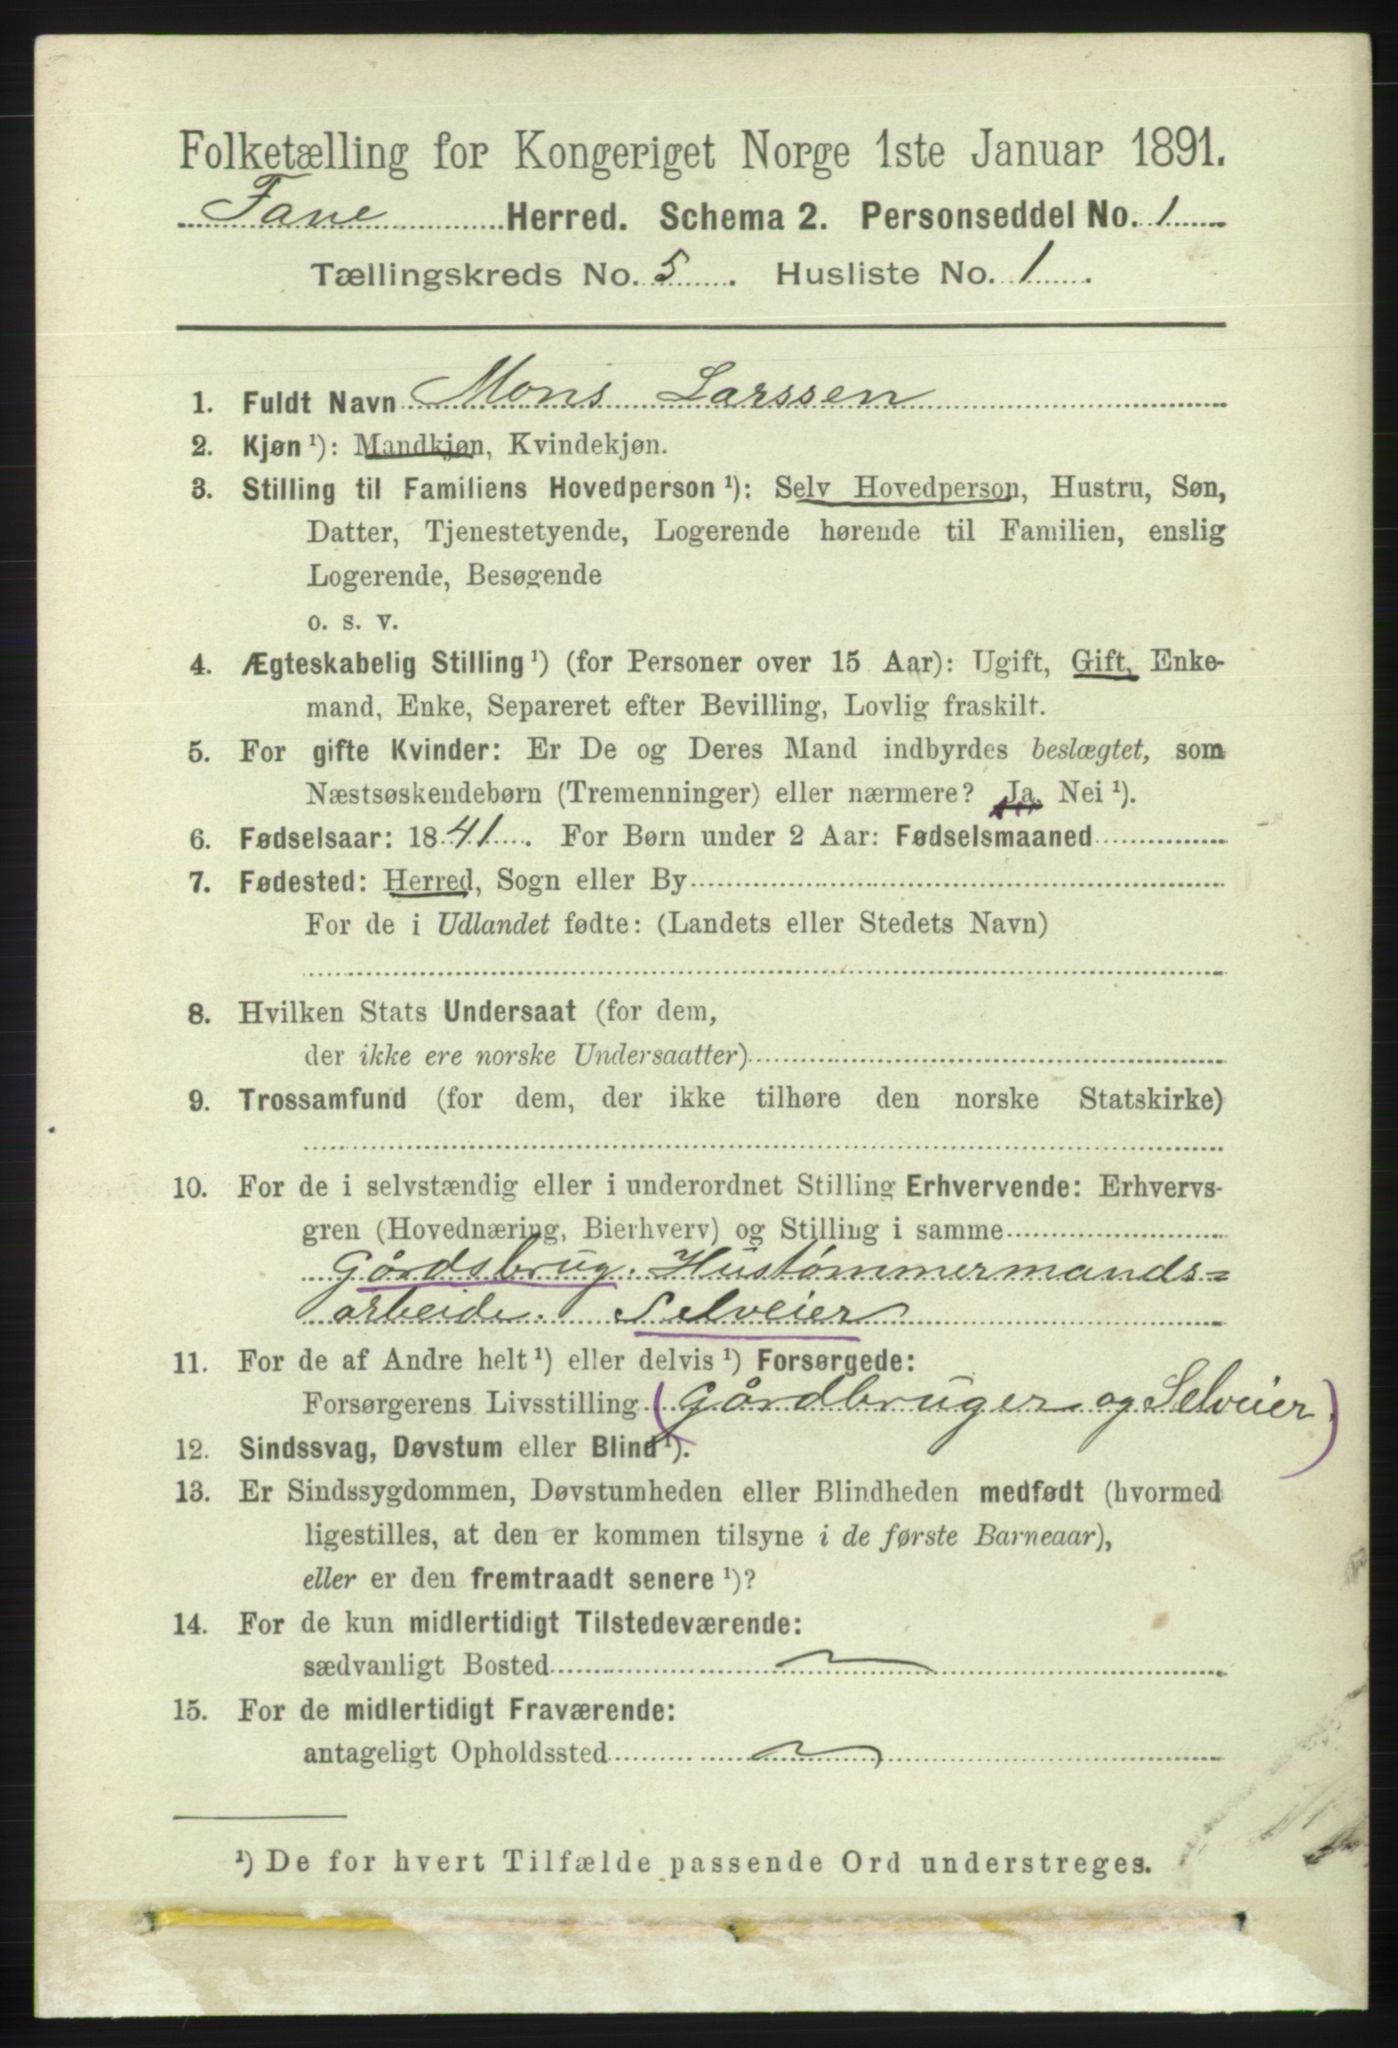 Folketælling for Kongeriget Norge 1ste Januar 1891.
Fane Herred. Schema 2. Personseddel No. 1
Tællingskreds No. 5. Husliste No. 1.
1. Fuldt Navn Mons Larssen
2. Kjøn ¹): Mandkjøn, Kvindekjøn.
3. Stilling til Familiens Hovedperson ¹): Selv Hovedperson, Hustru, Søn,
Datter, Tjenestetyende, Logerende hørende til Familien, enslig
Logerende, Besøgende
o. s. v.
4. Ægteskabelig Stilling ¹) (for Personer over 15 Aar): Ugift, Gift, Enke-
mand, Enke, Separeret efter Bevilling, Lovlig fraskilt.
5. For gifte Kvinder: Er De og Deres Mand indbyrdes beslægtet, som
Næstsøskendebørn (Tremenninger) eller nærmere? Ja, Nei ¹).
6. Fødselsaar: 1841. For Børn under 2 Aar: Fødselsmaaned
7. Fødested: Herred, Sogn eller By
For de i Udlandet fødte: (Landets eller Stedets Navn)
8. Hvilken Stats Undersaat (for dem,
der ikke ere norske Undersaatter)
9. Trossamfund (for dem, der ikke tilhøre den norske Statskirke)
10. For de i selvstændig eller i underordnet Stilling Erhvervende: Erhvervs-
gren (Hovednæring, Bierhverv) og Stilling i samme
Gårdsbrug. Hustømmermands=
arbeide. Selveier
11. For de af Andre helt ¹) eller delvis ¹) Forsørgede:
Forsørgerens Livsstilling (Gårdbruger og Selveier)
12. Sindssvag, Døvstum eller Blind ¹).
13. Er Sindssygdommen, Døvstumheden eller Blindheden medfødt (hvormed
ligestilles, at den er kommen tilsyne i de første Barneaar),
eller er den fremtraadt senere ¹)?
14. For de kun midlertidigt Tilstedeværende:
sædvanligt Bosted
15. For de midlertidigt Fraværende:
antageligt Opholdssted
¹) De for hvert Tilfælde passende Ord understreges.